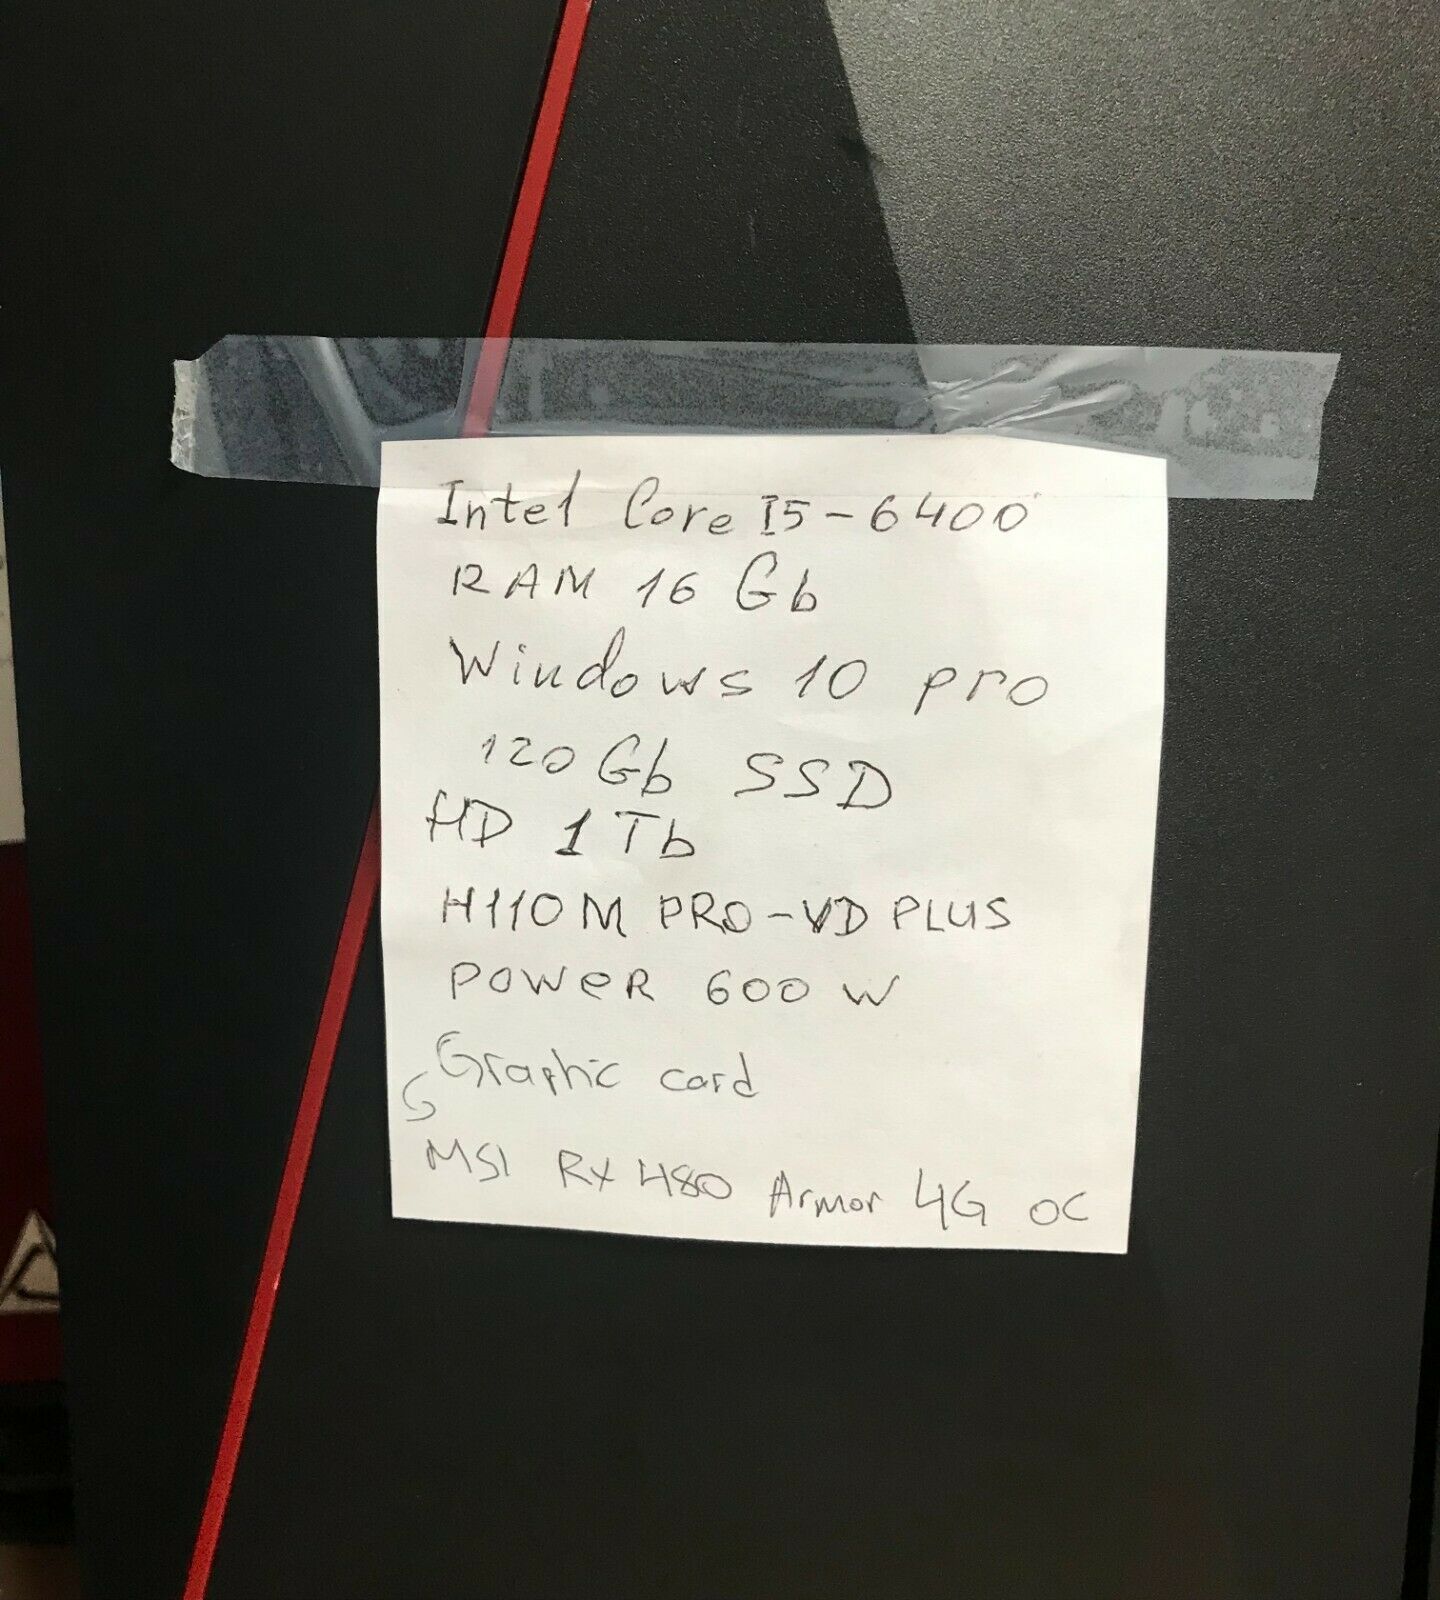 Intel Core I5-6400
RAM 16 Gb
Windows 10 pro
120 Gb SSD
HD 1 Tb
H110M PRO-VD PLUS
POWeR 600 W
Graphic card
MSI RX 480 Armor 4G OC